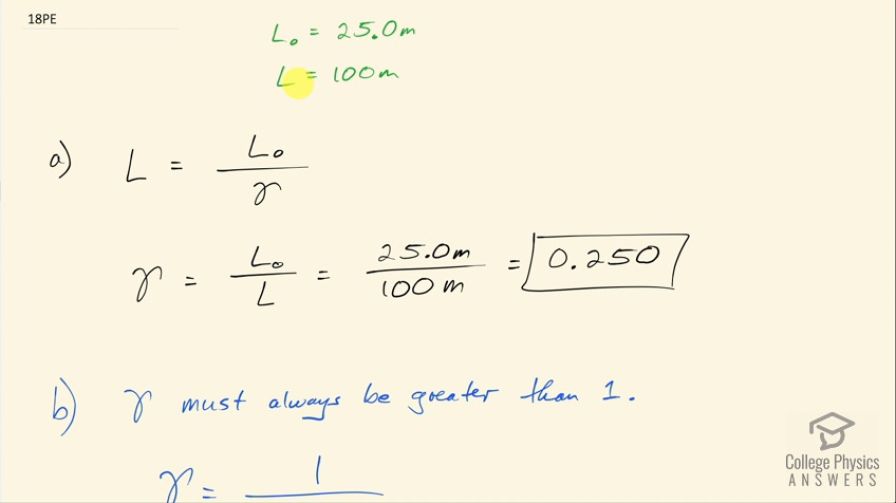 18PE
L₀ = 25.0m
L = 100m
a) L = L₀ / γ
γ = L₀ / L = 25.0m / 100 m = 0.250
b) γ must always be greater than 1.
γ = 1
College Physics
ANSWERS